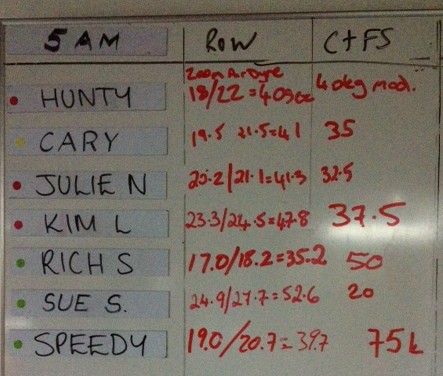 5 AM ROW C+FS
HUNTY 18/22 = 40sec 40kg mod.
CARY 19.5 21.5=41 35
JULIE N 20.2/21.1=41.3 32.5
KIM L 23.3/24.5=47.8 37.5
RICH S 17.0/18.2=35.2 50
SUE S. 24.9/27.7=52.6 20
SPEEDY 19.0/20.7=39.7 75k